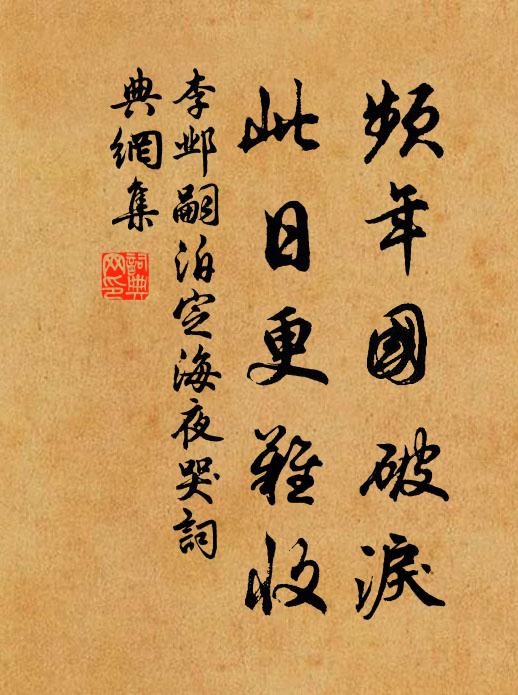 頻年國破淚
此日更難收
李邺嗣泊定海夜哭詞
典網集
詞典網印